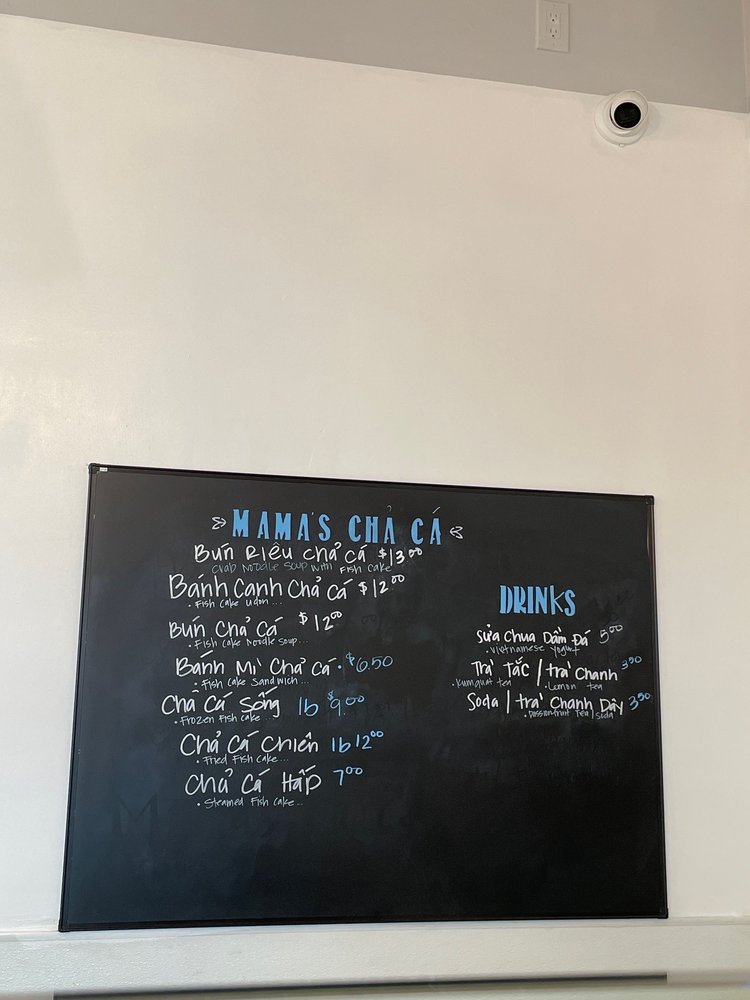 MAMA'S CHẢ CÁ
BÚN RIÊU CHẢ CÁ $13.00
CRAB NOODLE SOUP WITH FISH CAKE
BÁNH CANH CHẢ CÁ $12.00
• FISH CAKE UDON...
BÚN CHẢ CÁ $12.00
• FISH CAKE NOODLE SOUP...
BÁNH MÌ CHẢ CÁ • $6.50
• FISH CAKE SANDWICH...
CHẢ CÁ SỐNG 1b $9.00
• FROZEN FISH CAKE...
CHẢ CÁ CHIÊN 1b 12.00
• FRIED FISH CAKE...
CHẢ CÁ HẤP 7.00
• STEAMED FISH CAKE...
DRINKS
SỮA CHUA DẦM ĐÁ 5.00
• VIETNAMESE YOGURT
TRÀ TẮC / TRÀ CHANH 3.50
• KUMQUAT TEA • LEMON TEA
SODA / TRÀ CHANH DÂY 3.50
• PASSIONFRUIT TEA / SODA